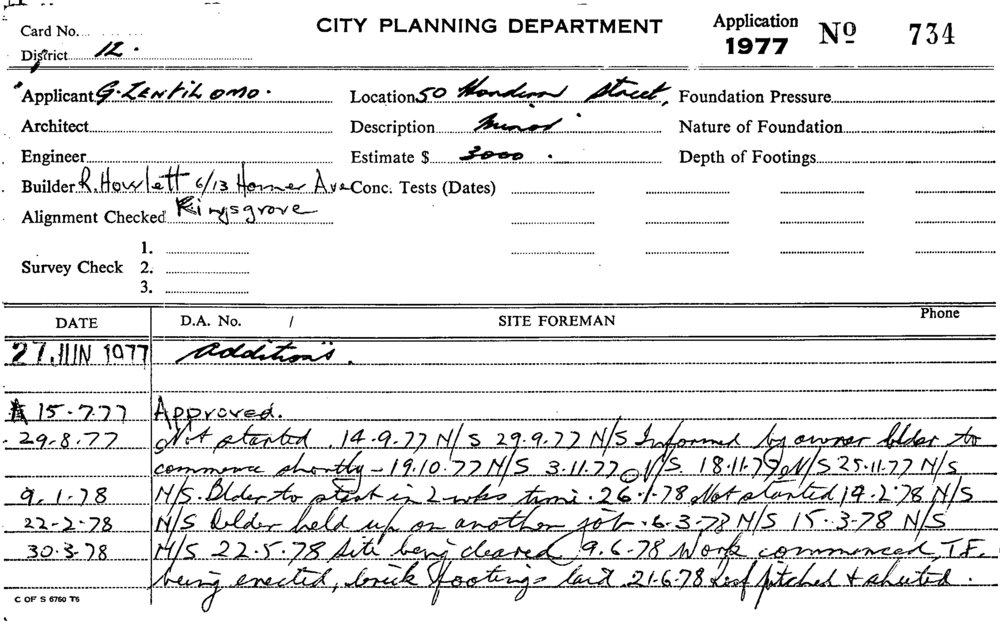 CITY PLANNING DEPARTMENT
Application 1977 Nº 734
Card No.
District 12.
Applicant G. ZENTILOMO. Location 50 Street, Foundation Pressure
Architect Description Minor Nature of Foundation
Engineer Estimate $ 3000. Depth of Footings
Builder R. Howlett 6/13 Homer Ave Conc. Tests (Dates)
Alignment Checked Kingsgrove
1.
Survey Check 2.
3.
DATE D.A. No. / SITE FOREMAN Phone
27 JUN 1977 Additions.
15.7.77 Approved.
29.8.77 Not started. 14.9.77 N/S 29.9.77 N/S Informed by owner blder to
commence shortly - 19.10.77 N/S 3.11.77 N/S 18.11.77 N/S 25.11.77 N/S
9.1.78 N/S. Blder to start in 2 wks time. 26.1.78 Not started 14.2.78 N/S
22-2-78 N/S Bolder held up on another job. 6.3.78 N/S 15.3.78 N/S
30.3.78 N/S 22.5.78 Site being cleared 9.6.78 Work commenced, T.F.
being erected, brick footings laid 21.6.78 pitched + sheeted.
C OF S 6760 T6